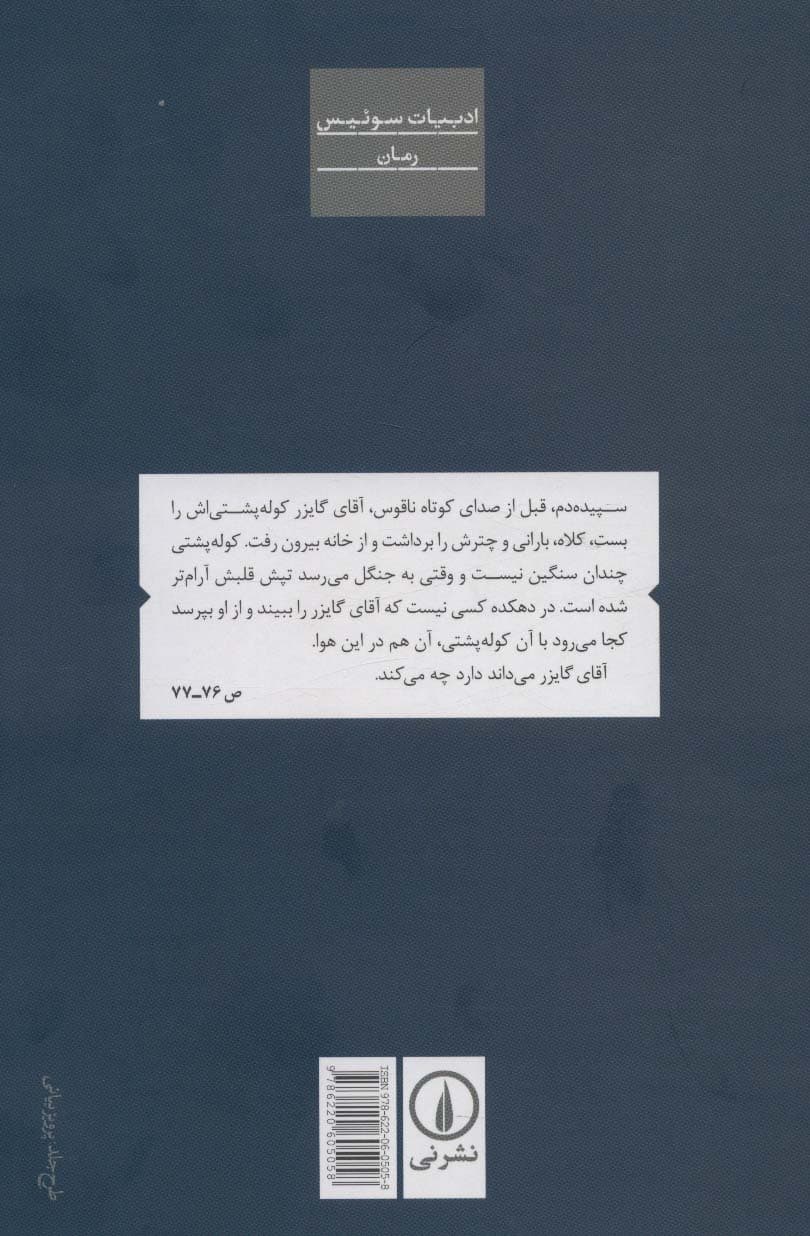 ادبیات سوئیس
رمان
سپیده‌دم، قبل از صدای کوتاه ناقوس، آقای گایزر کوله‌پشتی‌اش را
بست، کلاه، بارانی و چترش را برداشت و از خانه بیرون رفت. کوله‌پشتی
چندان سنگین نیست و وقتی به جنگل می‌رسد تپش قلبش آرام‌تر
شده است. در دهکده کسی نیست که آقای گایزر را ببیند و از او بپرسد
کجا می‌رود با آن کوله‌پشتی، آن هم در این هوا.
آقای گایزر می‌داند دارد چه می‌کند.
ص ۷۶ــ۷۷
ISBN 978-622-06-0505-8
9786220605058
نشرنی
طرح جلد: پرویز بیانی